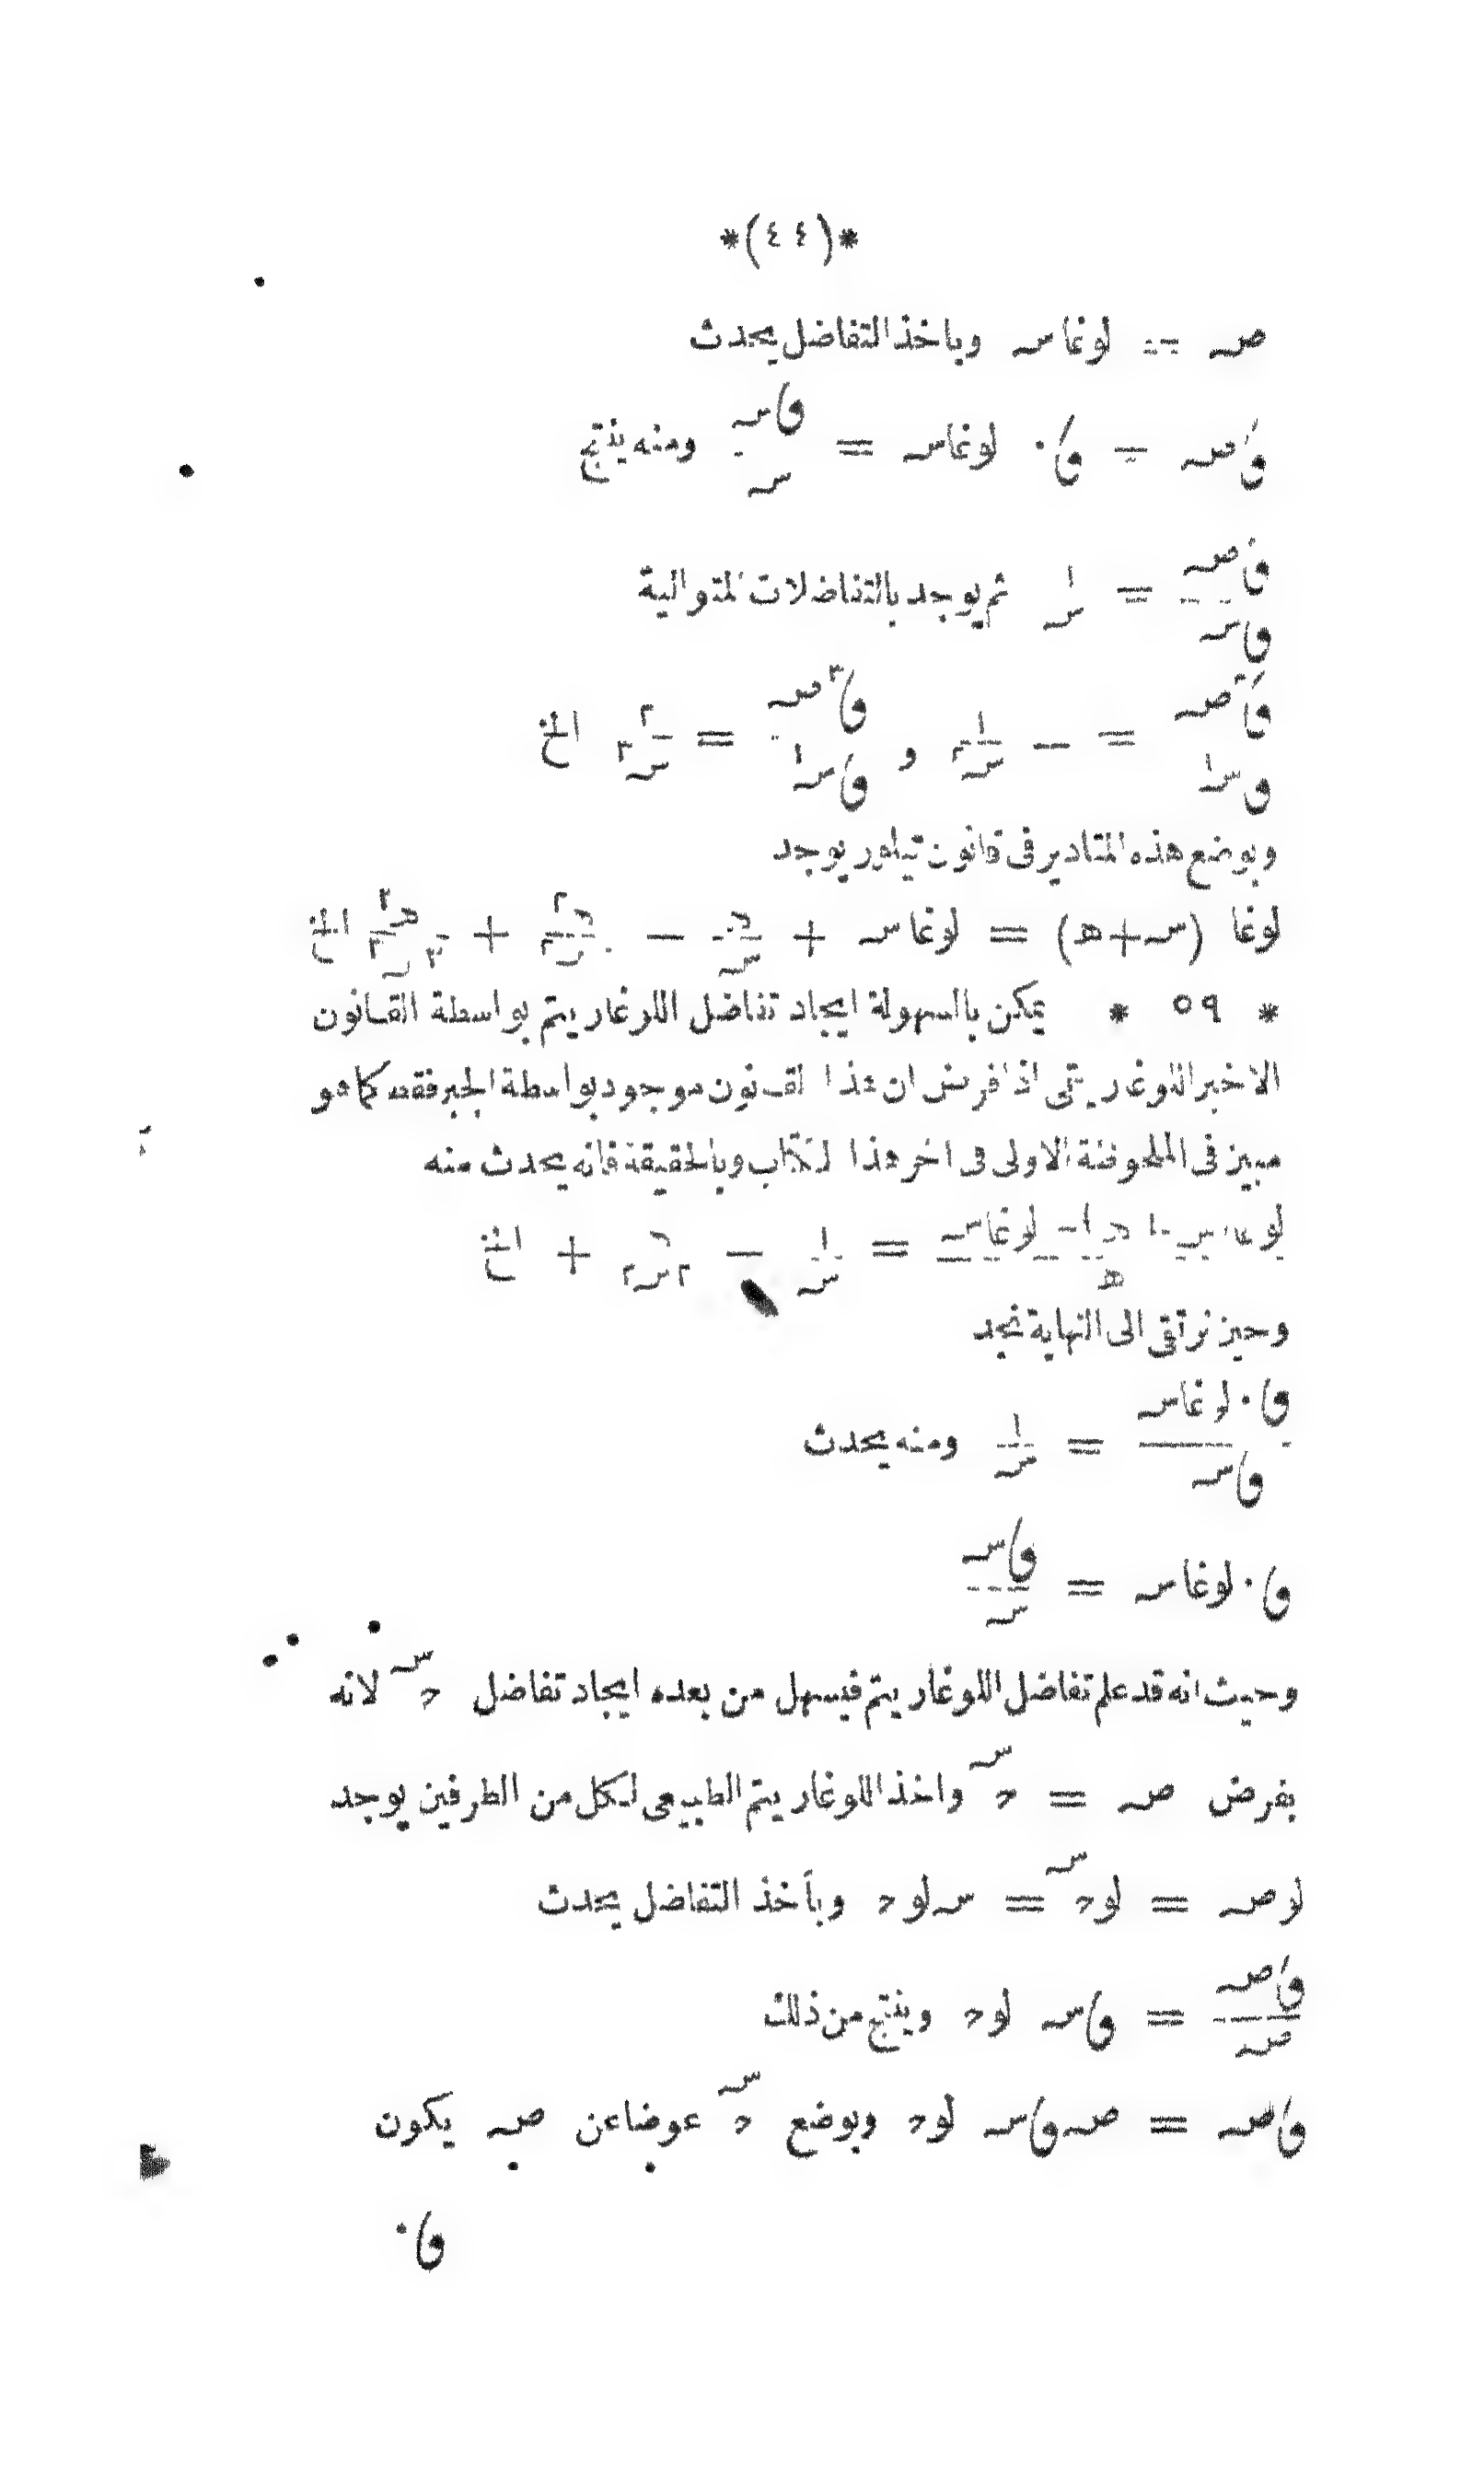 *(٤٤)*
صـ = لوغا سـ وباخذ التفاضل يحدث
فاصـ = فا٠ لوغاسـ = فاسـ / سـ ومنه ينتج
فاصـ / فاسـ = ١ / سـ ثم يوجد بالتفاضلات المتوالية
فا٢صـ / فاسـ٢ = − ١ / سـ٢ و فا٣صـ / فاسـ٣ = ٢ / سـ٣ الخ
وبوضع هذه المقادير فى قانون تيلور يوجد
لوغا (سـ+هـ) = لوغاسـ + هـ / سـ − هـ٢ / ٢سـ٢ + هـ٣ / ٣سـ٣ الخ
* ٥٩ * يمكن بالسهولة ايجاد تفاضل اللوغاريتم بواسطة القانون
الاخير اللوغاريتمى اذا فرض ان هذا القانون موجود بواسطة الجبر فقط كما هو
مبين فى الملحوظة الاولى فى اخر هذا الكتاب وبالحقيقة فانه يحدث منه
لوغا(سـ+هـ) − لوغاسـ / هـ = ١ / سـ − هـ / ٢سـ٢ + الخ
وحين نرتقى الى النهاية نجد
فا٠لوغاسـ / فاسـ = ١ / سـ ومنه يحدث
فا٠لوغاسـ = فاسـ / سـ
وحيث انه قد علم تفاضل اللوغاريتم فيسهل من بعده ايجاد تفاضل حـ^سـ لانه
بفرض صـ = حـ^سـ واخذ اللوغاريتم الطبيعى لكل من الطرفين يوجد
لوصـ = لوحـ^سـ = سـ لوحـ وبأخذ التفاضل يحدث
فاصـ / صـ = فاسـ لوحـ وينتج من ذلك
فاصـ = صـ فاسـ لوحـ وبوضع حـ^سـ عوضا عن صـ يكون
فا٠